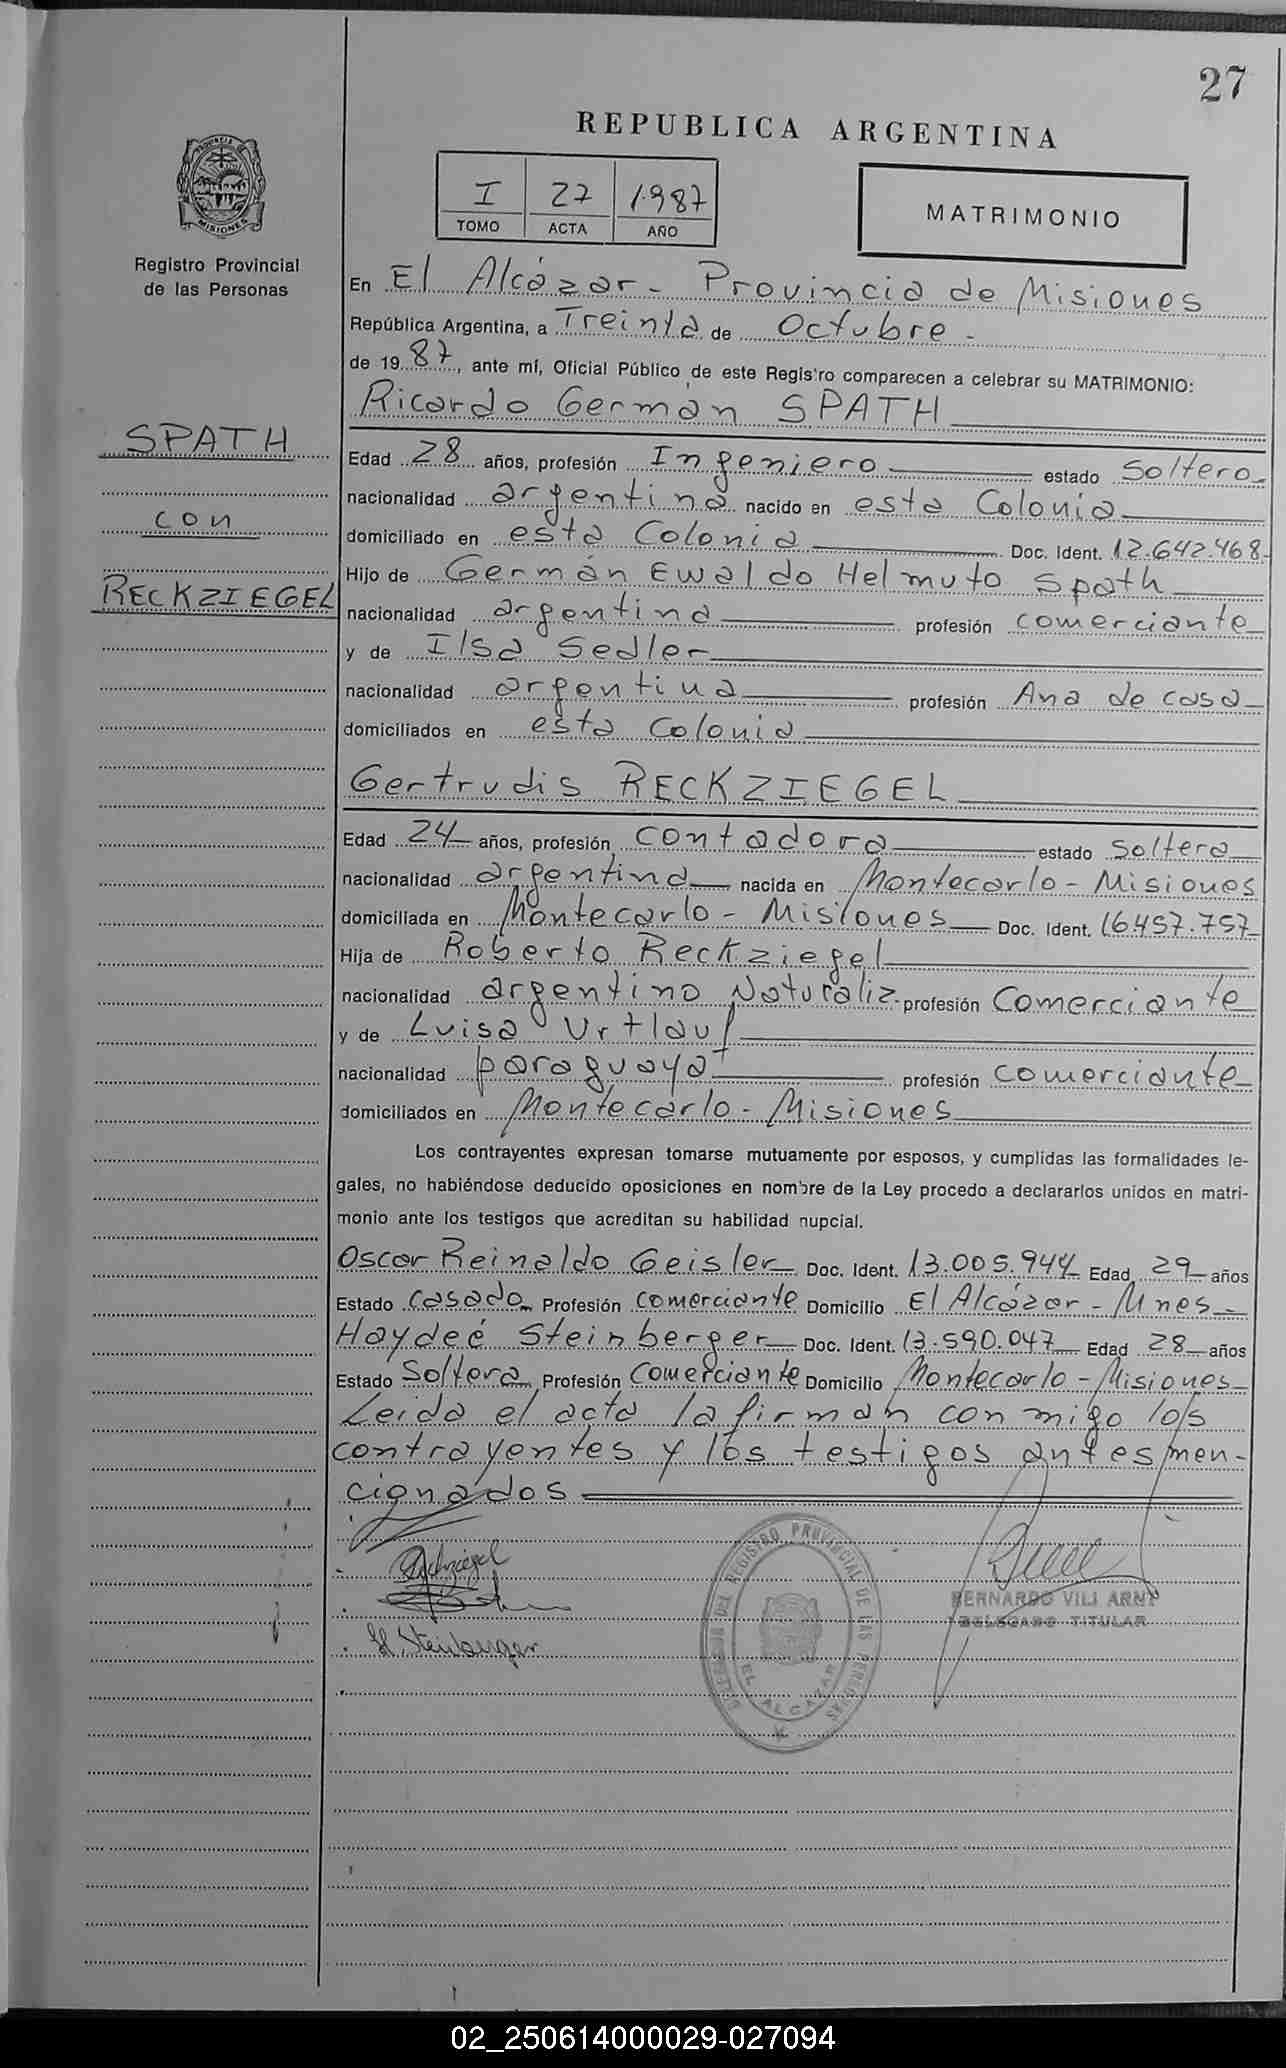 27
REPUBLICA ARGENTINA
I 27 1.987
TOMO ACTA AÑO
MATRIMONIO
PROVINCIA DE MISIONES
Registro Provincial
de las Personas
En El Alcázar - Provincia de Misiones
República Argentina, a Treinta de Octubre -
de 19 87, ante mí, Oficial Público de este Registro comparecen a celebrar su MATRIMONIO:
Ricardo Germán SPATH
SPATH
con
RECKZIEGEL
Edad 28 años, profesión Ingeniero estado Soltero
nacionalidad argentina nacido en esta Colonia
domiciliado en esta Colonia Doc. Ident. 12.642.468
Hijo de Germán Ewaldo Helmuto Spath
nacionalidad argentina profesión comerciante
y de Ilsa Sedler
nacionalidad argentina profesión Ana de casa
domiciliados en esta Colonia
Gertrudis RECKZIEGEL
Edad 24 años, profesión contadora estado soltera
nacionalidad argentina nacida en Montecarlo - Misiones
domiciliada en Montecarlo - Misiones Doc. Ident. 16457.757
Hija de Roberto Reckziegel
nacionalidad argentino Naturaliz. profesión Comerciante
y de Luisa Urtlauf
nacionalidad paraguaya profesión comerciante
domiciliados en Montecarlo - Misiones
Los contrayentes expresan tomarse mutuamente por esposos, y cumplidas las formalidades le-
gales, no habiéndose deducido oposiciones en nombre de la Ley procedo a declararlos unidos en matri-
monio ante los testigos que acreditan su habilidad nupcial.
Oscar Reinaldo Geisler Doc. Ident. 13.005.944 Edad 29 años
Estado casado Profesión comerciante Domicilio El Alcázar - Mnes -
Haydeé Steinberger Doc. Ident. 13.590.047 Edad 28 años
Estado Soltera Profesión Comerciante Domicilio Montecarlo - Misiones
Leida el acta la firman con migo los
contrayentes y los testigos antes men-
cionados
Reckziegel
H. Steinberger
REGISTRO PROVINCIAL DE LAS PERSONAS
EL ALCAZAR
BERNARDO VILI ARNT
DELEGADO TITULAR
02_250614000029-027094